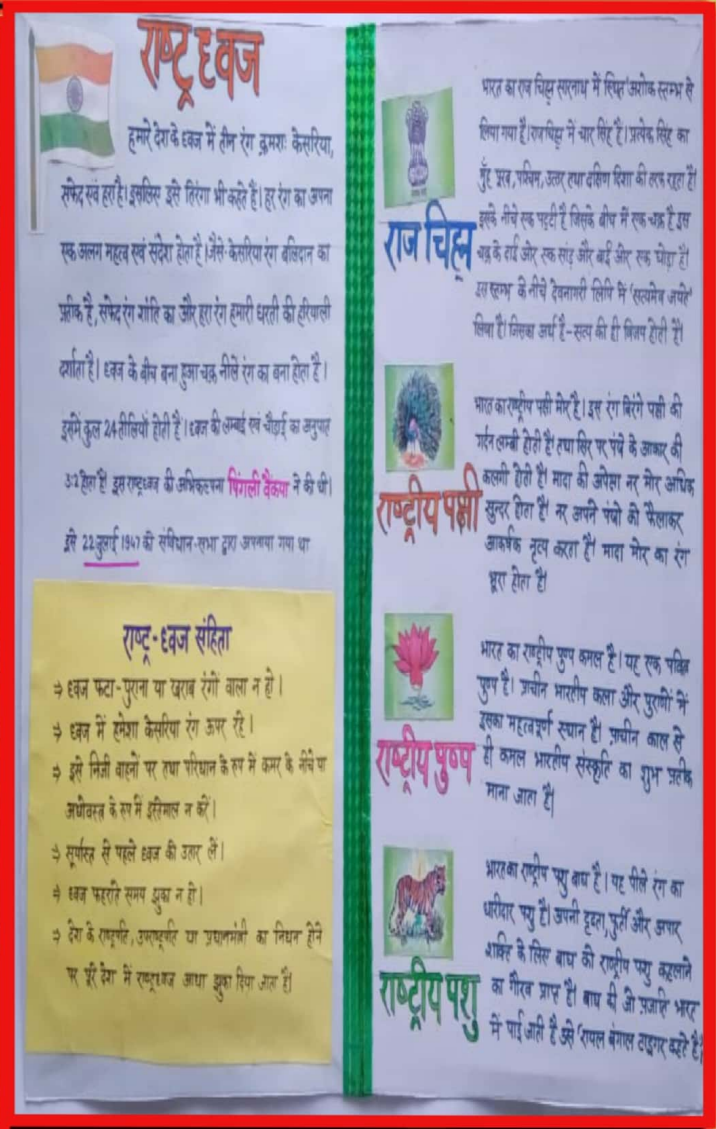 राष्ट्र ध्वज
हमारे देश के ध्वज में तीन रंग क्रमशः केसरिया,
सफेद एवं हरा है। इसलिए इसे तिरंगा भी कहते हैं। हर रंग का अपना
एक अलग महत्व एवं संदेश होता है। जैसे-केसरिया रंग बलिदान का
प्रतीक है, सफेद रंग शांति का और हरा रंग हमारी धरती की हरियाली
दर्शाता है। ध्वज के बीच बना हुआ चक्र नीले रंग का बना होता है।
इसमें कुल 24 तीलियाँ होती है। ध्वज की लम्बाई एवं चौड़ाई का अनुपात
3:2 होता है। इस राष्ट्रध्वज की अभिकल्पना पिंगली वैंकया ने की थी।
इसे 22 जुलाई 1947 को संविधान-सभा द्वारा अपनाया गया था
राष्ट्र-ध्वज संहिता
⇒ ध्वज फटा-पुराना या खराब रंगों वाला न हो।
⇒ ध्वज में हमेशा केसरिया रंग ऊपर रहे।
⇒ इसे निजी वाहनों पर तथा परिधान के रूप में कमर के नीचे या
अधोवस्त्र के रूप में इस्तिमाल न करें।
⇒ सूर्यास्त से पहले ध्वज को उतार लें।
⇒ ध्वज फहराते समय झुका न हो।
⇒ देश के राष्ट्रपति, उपराष्ट्रपति या प्रधानमंत्री का निधन होने
पर पूरे देश में राष्ट्रध्वज आधा झुका दिया जाता है।
भारत का राज चिह्न सारनाथ में स्थित 'अशोक स्तम्भ' से
लिया गया है। राज चिह्न में चार सिंह हैं। प्रत्येक सिंह का
मुँह पूरब, पश्चिम, उत्तर तथा दक्षिण दिशा की तरफ रहता है।
इसके नीचे एक पट्टी है जिसके बीच में एक चक्र है इस
राज चिह्न
चक्र के दाईं ओर एक सांड और बाईं ओर एक घोड़ा है।
इस स्तम्भ के नीचे देवनागरी लिपि में 'सत्यमेव जयते'
लिखा है। जिसका अर्थ है-सत्य की ही विजय होती है।
भारत का राष्ट्रीय पक्षी मोर है। इस रंग बिरंगे पक्षी की
गर्दन लम्बी होती है। तथा सिर पर पंखे के आकार की
कलगी होती है। मादा की अपेक्षा नर मोर अधिक
राष्ट्रीय पक्षी
सुन्दर होता है। नर अपने पंखों को फैलाकर
आकर्षक नृत्य करता है। मादा मोर का रंग
भूरा होता है।
भारत का राष्ट्रीय पुष्प कमल है। यह एक पवित्र
पुष्प है। प्राचीन भारतीय कला और पुराणों में
इसका महत्वपूर्ण स्थान है। प्राचीन काल से
राष्ट्रीय पुष्प
ही कमल भारतीय संस्कृति का शुभ प्रतीक
माना जाता है।
भारत का राष्ट्रीय पशु बाघ है। यह पीले रंग का
धारीदार पशु है। अपनी दृढ़ता, फुर्ती और अपार
शक्ति के लिए बाघ को राष्ट्रीय पशु कहलाने
राष्ट्रीय पशु
का गौरव प्राप्त है। बाघ की जो प्रजाति भारत
में पाई जाती है उसे 'रायल बंगाल टाइगर' कहते है।